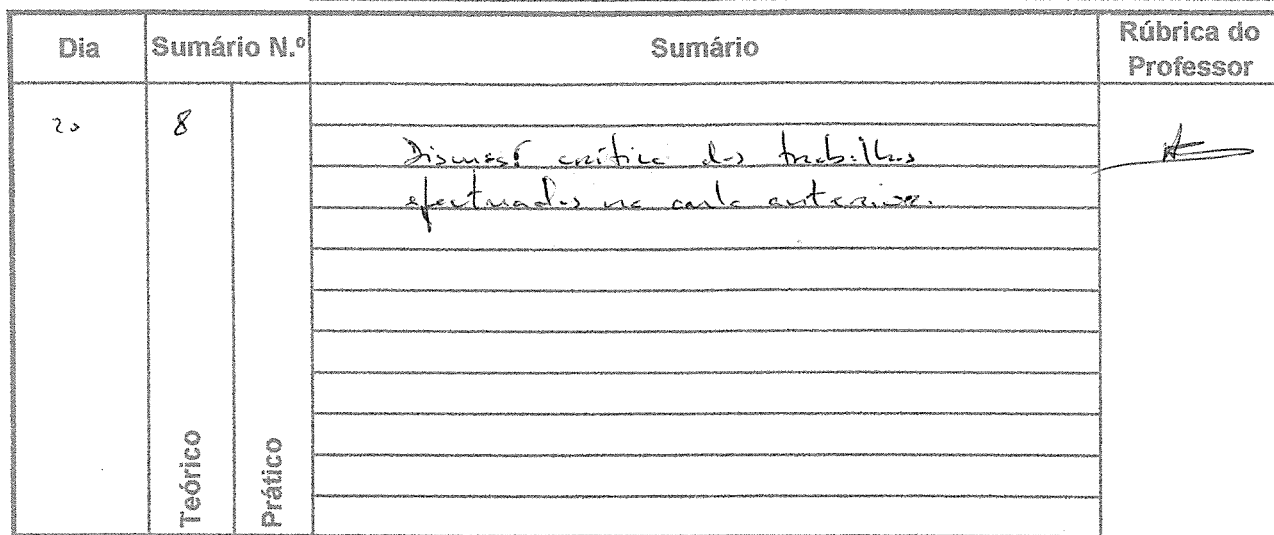 Dia Sumário N.º Sumário Rúbrica do Professor
20 8
Discussã crítica dos trabalhos
efectuados na aula anterior.
Teórico Prático